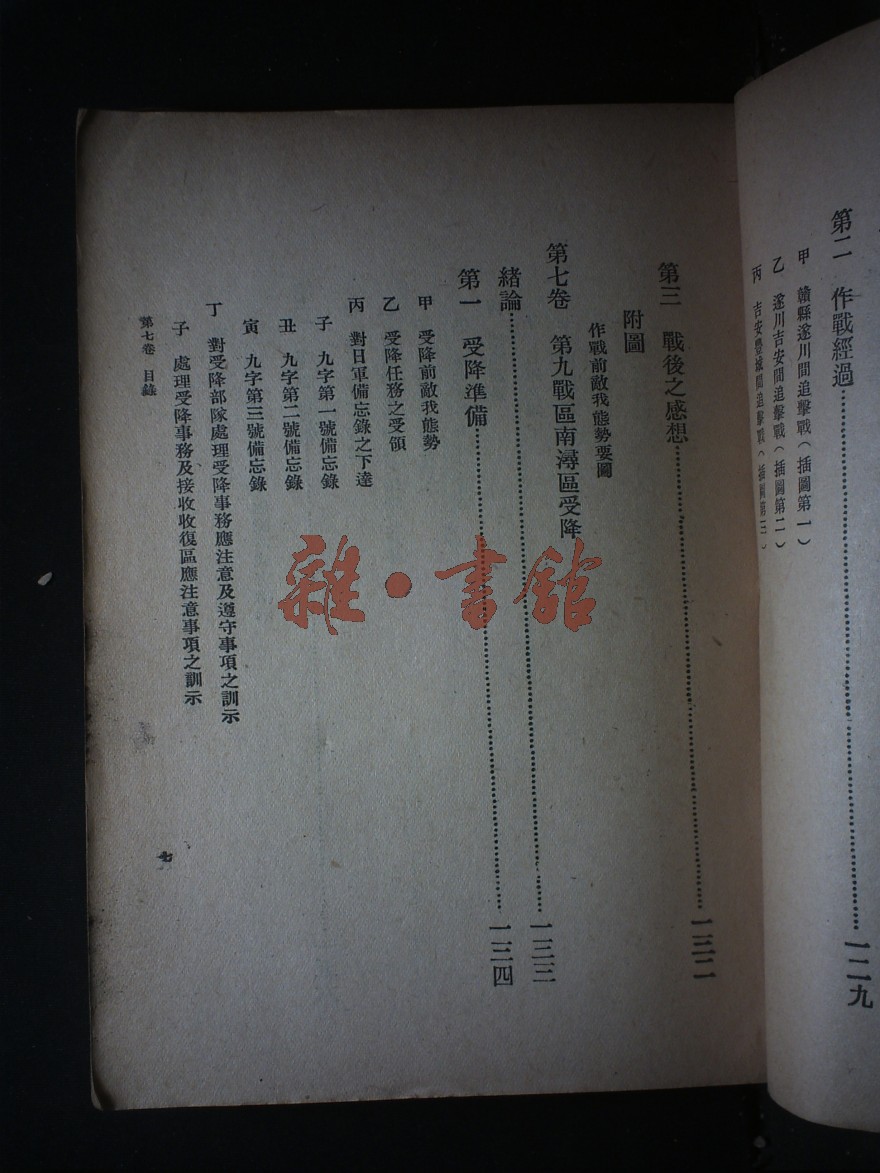 第二 作戰經過……一二九
甲 贛縣遂川間追擊戰（插圖第一）
乙 遂川吉安間追擊戰（插圖第二）
丙 吉安豐城間追擊戰（插圖第三）
第三 戰後之感想……一三二
附圖
作戰前敵我態勢要圖
第七卷 第九戰區南潯區受降
緒論……一三三
第一 受降準備……一三四
甲 受降前敵我態勢
乙 受降任務之受領
丙 對日軍備忘錄之下達
子 九字第一號備忘錄
丑 九字第二號備忘錄
寅 九字第三號備忘錄
丁 對受降部隊處理受降事務應注意及遵守事項之訓示
子 處理受降事務及接收收復區應注意事項之訓示
第七卷 目錄
七
雜·書館